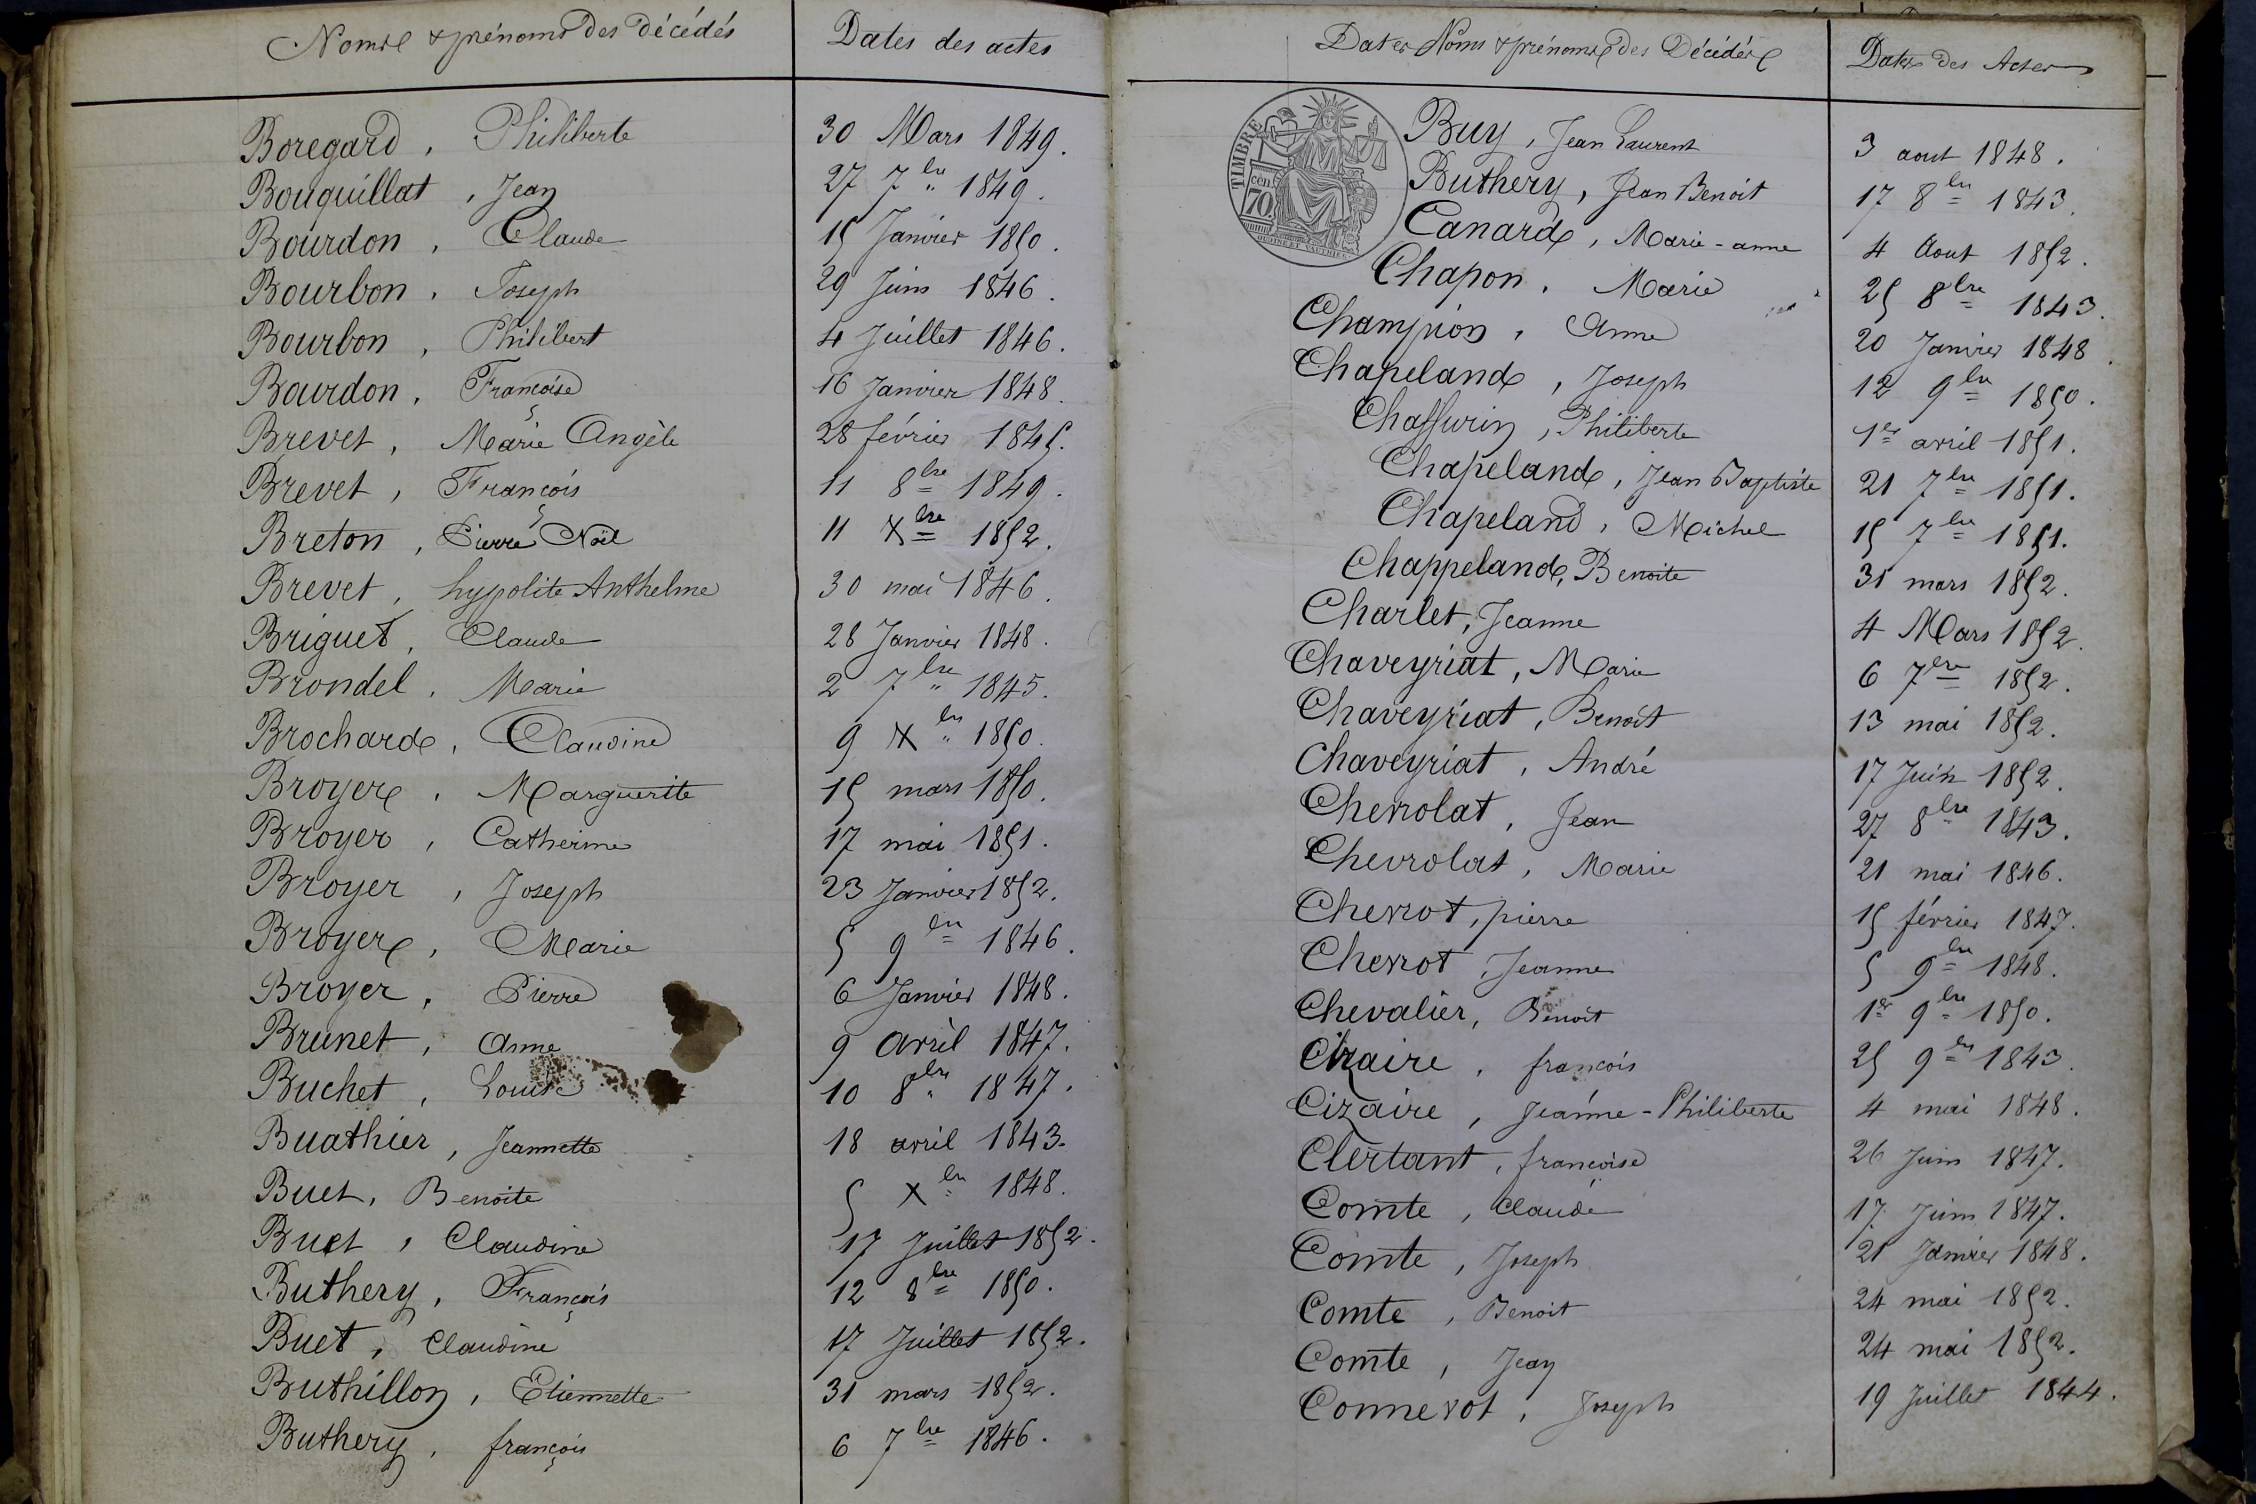 Noms & prénoms des décédés Dates des actes
Boregard, Philiberte 30 Mars 1849.
Bouquillat, Jean 27 7bre 1849.
Bourdon, Claude 15 Janvier 1850.
Bourbon, Joseph 29 Juin 1846.
Bourbon, Philibert 4 Juillet 1846.
Bourdon, Françoise 16 Janvier 1848.
Brevet, Marie Angèle 28 février 1845.
Brevet, François 11 8bre 1849.
Breton, Pierre Noël 11 Xbre 1852.
Brevet, hypolite Anthelme 30 mai 1846.
Briguet, Claude 28 Janvier 1848.
Brondel, Marie 2 7bre 1845.
Brochard, Claudine 9 Xbre 1850.
Broyer, Marguerite 15 mars 1850.
Broyer, Catherine 17 mai 1851.
Broyer, Joseph 23 Janvier 1852.
Broyer, Marie 5 9bre 1846.
Broyer, Pierre 6 Janvier 1848.
Brunet, Anne 9 avril 1847.
Buchet, Louise 10 8bre 1847.
Buathier, Jeannette 18 avril 1843.
Buet, Benoite 5 Xbre 1848.
Buet, Claudine 17 Juillet 1852.
Buthery, François 12 8bre 1850.
Buet, Claudine 17 Juillet 1852.
Buthillon, Etiennette 31 mars 1852.
Buthery, françois 6 7bre 1846.
Dates Noms & prénoms des Décédés Dates des Actes
TIMBRE
70 cen.
Buy, Jean Laurent 3 aout 1848.
Buthery, Jean Benoit 17 8bre 1843.
Canard, Marie-anne 4 Aout 1852.
Chapon, Marie 25 8bre 1843.
Champion, Anne 20 Janvier 1848.
Chapeland, Joseph 12 9bre 1850.
Chaffurin, Philiberte 1er avril 1851.
Chapeland, Jean Baptiste 21 7bre 1851.
Chapeland, Michel 15 7bre 1851.
Chappeland, Benoite 31 mars 1852.
Charlet, Jeanne 4 Mars 1852.
Chaveyriat, Marie 6 7bre 1852.
Chaveyriat, Benoît 13 mai 1852.
Chaveyriat, André 17 Juin 1852.
Chevrolat, Jean 27 8bre 1843.
Chevrolat, Marie 21 mai 1846.
Chevrot, pierre 15 février 1847.
Chevrot, Jeanne 5 9bre 1848.
Chevalier, Benoit 1er 9bre 1850.
Cizaire, françois 25 9bre 1843.
Cizaire, Jeanne-Philiberte 4 mai 1848.
Clertant, françoise 26 Juin 1847.
Comte, Claude 17 Juin 1847.
Comte, Joseph 21 Janvier 1848.
Comte, Benoit 24 mai 1852.
Comte, Jean 24 mai 1852.
Connevot, Joseph 19 Juillet 1844.